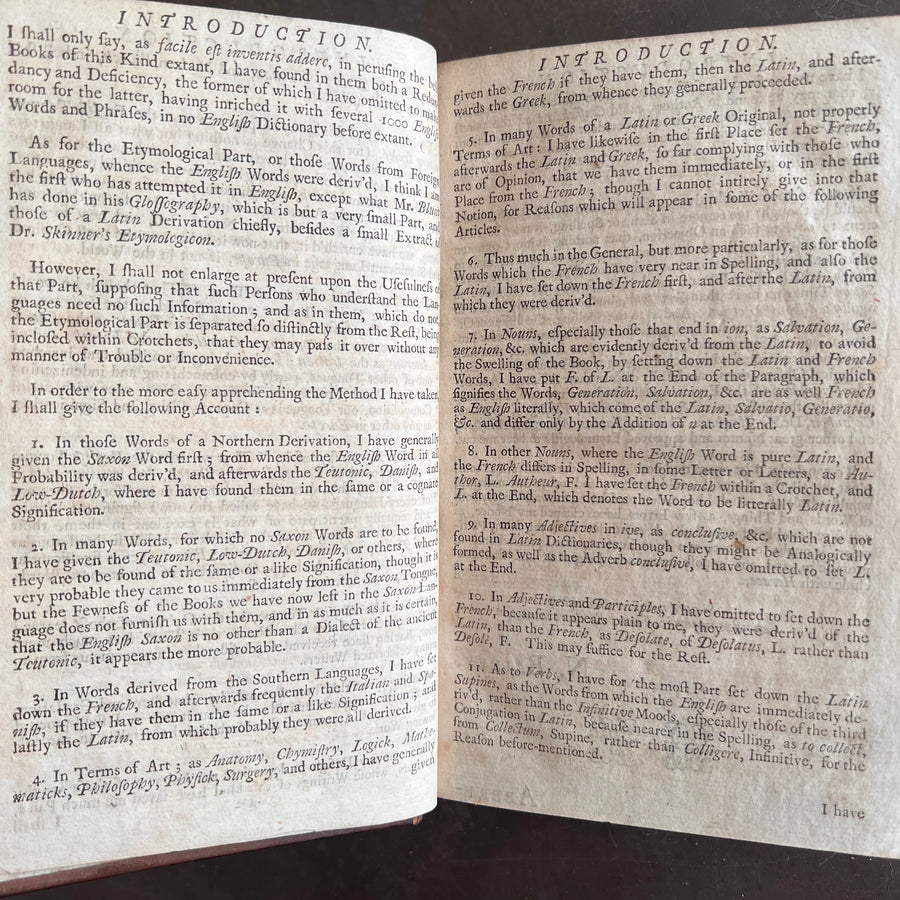 INTRODUCTION.
I ſhall only ſay, as facile eſt inventis addere, in peruſing the
Books of this Kind extant, I have found in them both a Redun
dancy and Deficiency, the former of which I have omitted to make
room for the latter, having inriched it with ſeveral 1000 Engliſh
Words and Phraſes, in no Engliſh Dictionary before extant.
As for the Etymological Part, or thoſe Words from Foreign
Languages, whence the Engliſh Words were deriv'd, I think I am
the firſt who has attempted it in Engliſh, except what Mr. Blunt
has done in his Gloſſography, which is but a very ſmall Part, and
thoſe of a Latin Derivation chiefly, beſides a ſmall Extract of
Dr. Skinner's Etymologicon.
However, I ſhall not enlarge at preſent upon the Uſefulneſs of
that Part, ſuppoſing that ſuch Perſons who underſtand the Lan-
guages need no ſuch Information; and as in them, which do not,
the Etymological Part is ſeparated ſo diſtinctly from the Reſt, being
incloſed within Crotchets, that they may paſs it over without any
manner of Trouble or Inconvenience.
In order to the more eaſy apprehending the Method I have taken,
I ſhall give the following Account:
1. In thoſe Words of a Northern Derivation, I have generally
given the Saxon Word firſt; from whence the Engliſh Word in all
Probability was deriv'd, and afterwards the Teutonic, Daniſh, and
Low-Dutch, where I have found them in the ſame or a cognate
Signification.
2. In many Words, for which no Saxon Words are to be found,
I have given the Teutonic, Low-Dutch, Daniſh, or others, where
they are to be found of the ſame or a like Signification, though it is
very probable they came to us immediately from the Saxon Tongue,
but the Fewneſs of the Books we have now left in the Saxon Lan-
guage does not furniſh us with them, and in as much as it is certain,
that the Engliſh Saxon is no other than a Dialect of the ancient
Teutonic, it appears the more probable.
3. In Words derived from the Southern Languages, I have ſet
down the French, and afterwards frequently the Italian and Spa-
niſh, if they have them in the ſame or a like Signification; and
laſtly the Latin, from which probably they were all derived.
4. In Terms of Art; as Anatomy, Chymiſtry, Logick, Mathe-
maticks, Philoſophy, Phyſick, Surgery, and others, I have generally
given
INTRODUCTION.
given the French if they have them, then the Latin, and after-
wards the Greek, from whence they generally proceeded.
5. In many Words of a Latin or Greek Original, not properly
Terms of Art: I have likewiſe in the firſt Place ſet the French,
afterwards the Latin and Greek, ſo far complying with thoſe who
are of Opinion, that we have them immediately, or in the firſt
Place from the French; though I cannot intirely give into that
Notion, for Reaſons which will appear in ſome of the following
Articles.
6. Thus much in the General, but more particularly, as for thoſe
Words which the French have very near in Spelling, and alſo the
Latin, I have ſet down the French firſt, and after the Latin, from
which they were deriv'd.
7. In Nouns, eſpecially thoſe that end in ion, as Salvation, Ge-
neration, &c. which are evidently deriv'd from the Latin, to avoid
the Swelling of the Book, by ſetting down the Latin and French
Words, I have put F. of L. at the End of the Paragraph, which
ſignifies the Words, Generation, Salvation, &c. are as well French
as Engliſh literally, which come of the Latin, Salvatio, Generatio,
&c. and differ only by the Addition of n at the End.
8. In other Nouns, where the Engliſh Word is pure Latin, and
the French differs in Spelling, in ſome Letter or Letters, as Au-
thor, L. Autheur, F. I have ſet the French within a Crotchet, and
L. at the End, which denotes the Word to be litterally Latin.
9. In many Adjectives in ive, as concluſive, &c. which are not
found in Latin Dictionaries, though they might be Analogically
formed, as well as the Adverb concluſive, I have omitted to ſet L.
at the End.
10. In Adjectives and Participles, I have omitted to ſet down the
French, becauſe it appears plain to me, they were deriv'd of the
Latin, than the French, as Deſolate, of Deſolatus, L. rather than
Deſolé, F. This may ſuffice for the Reſt.
11. As to Verbs, I have for the moſt Part ſet down the Latin
Supines, as the Words from which the Engliſh are immediately de-
riv'd, rather than the Infinitive Moods, eſpecially thoſe of the third
Conjugation in Latin, becauſe nearer in the Spelling, as to collect,
from Collectum, Supine, rather than Colligere, Infinitive, for the
Reaſon before-mentioned.
I have